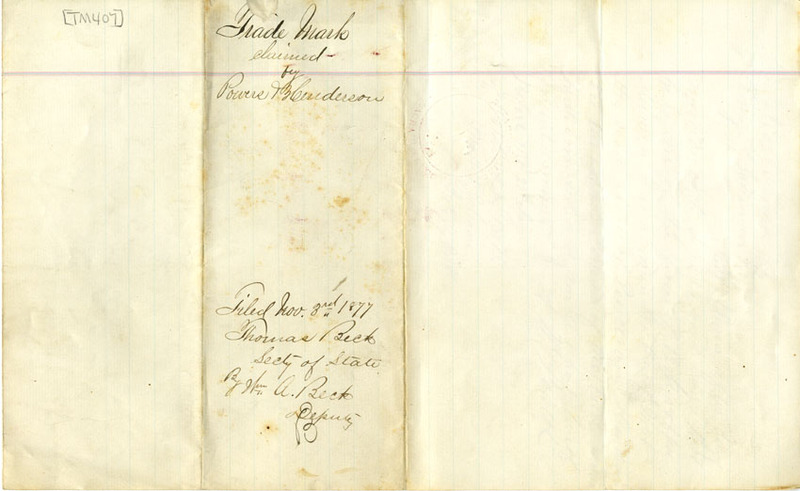 [TM407]
Trade Mark
claimed
by
Powers & Henderson
Filed Nov. 3rd 1877
Thomas Beck
Secty of State
By Wm. A. Beck
Deputy